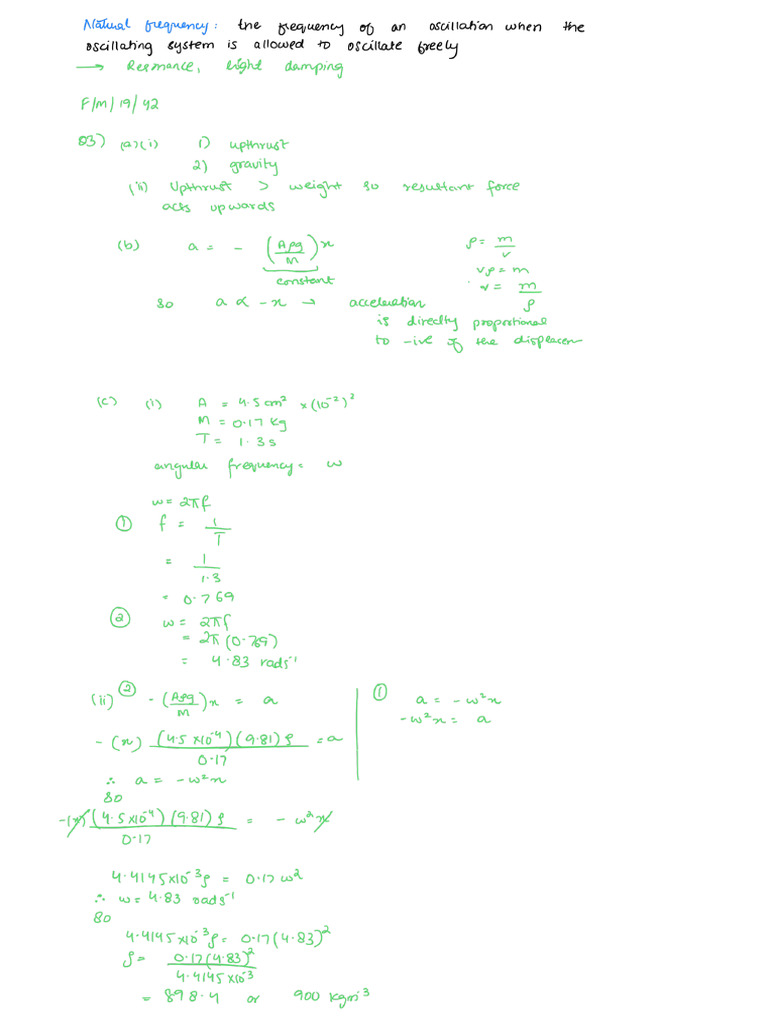 Natural frequency: the frequency of an oscillation when the
oscillating system is allowed to oscillate freely
→ Resonance, light damping
F/M/19/42
Q3) (a)(i) 1) upthrust
2) gravity
(ii) Upthrust > weight so resultant force
acts upwards
(b) a = - (Aρg/M) x
constant
ρ = m/v
vρ = m
v = m/ρ
so a ∝ -x → acceleration
is directly proportional
to -ive of the displacem
(c) (i) A = 4.5 cm² × (10⁻²)²
M = 0.17 kg
T = 1.3 s
angular frequency = w
w = 2πf
① f = 1/T
= 1/1.3
= 0.769
② w = 2πf
= 2π (0.769)
= 4.83 rads⁻¹
(ii) ② -(Aρg/M) x = a
-(x) (4.5 ×10⁻⁴)(9.81) ρ / 0.17 = a
∴ a = -w²x
so
① a = -w²x
-w²x = a
-(x) (4.5 ×10⁻⁴)(9.81) ρ / 0.17 = - w²x
4.4145×10⁻³ρ = 0.17 w²
∴ w = 4.83 rads⁻¹
so
4.4145×10⁻³ρ = 0.17(4.83)²
ρ = 0.17(4.83)² / 4.4145×10⁻³
= 898.4 or 900 kgm⁻³